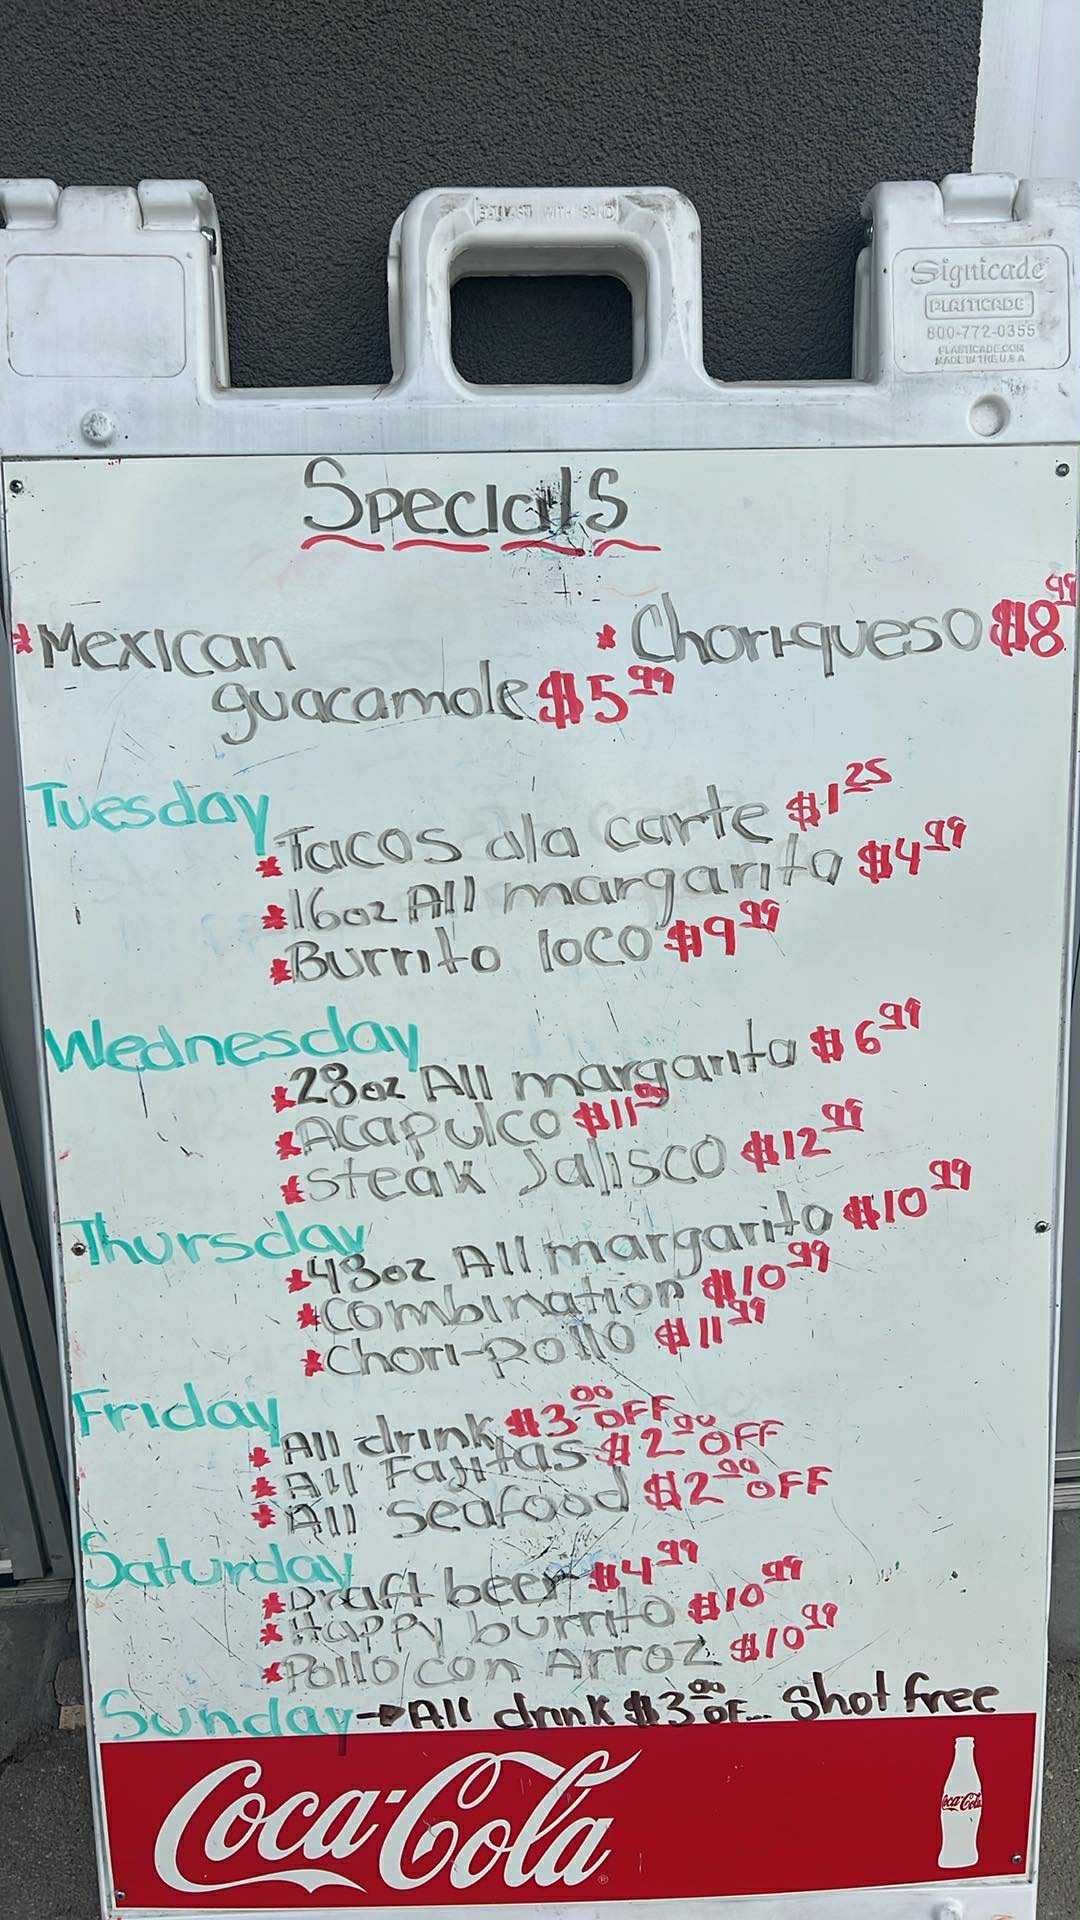 BALLAST WITH SAND
Signicade
PLASTICADE
800-772-0355
PLASTICADE.COM
MADE IN THE U.S.A
Specials
*Mexican guacamole $5.99
* Chori-queso $8.99
Tuesday
*Tacos ala carte $1.25
*16oz All margarita $4.99
*Burrito loco $9.99
Wednesday
*28oz All margarita $6.99
*Acapulco $11.99
*steak Jalisco $12.99
Thursday
*48oz All margarita $10.99
*combination $10.99
*Chori-pollo $11.99
Friday
*All drink $3.00 OFF
*All Fajitas $2.00 OFF
*All seafood $2.00 OFF
Saturday
*Draft beer $4.99
*Happy burrito $10.99
*Pollo con Arroz $10.99
Sunday→All drink $3.00 OF... Shot free
Coca-Cola
Coca-Cola